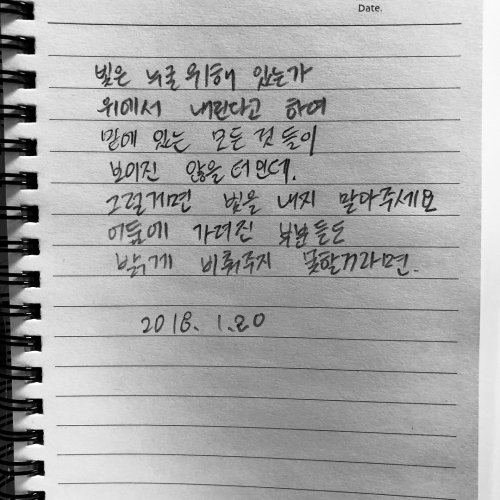 Date.
빛은 누굴 위해 있는가
위에서 내린다고 하여
밑에 있는 모든 것 들이
보이진 않을 터인데.
그럴게면 빛을 내지 말아주세요
어둠에 가려진 부분들도
밝게 비춰주지 못할거라면.
2018. 1.20